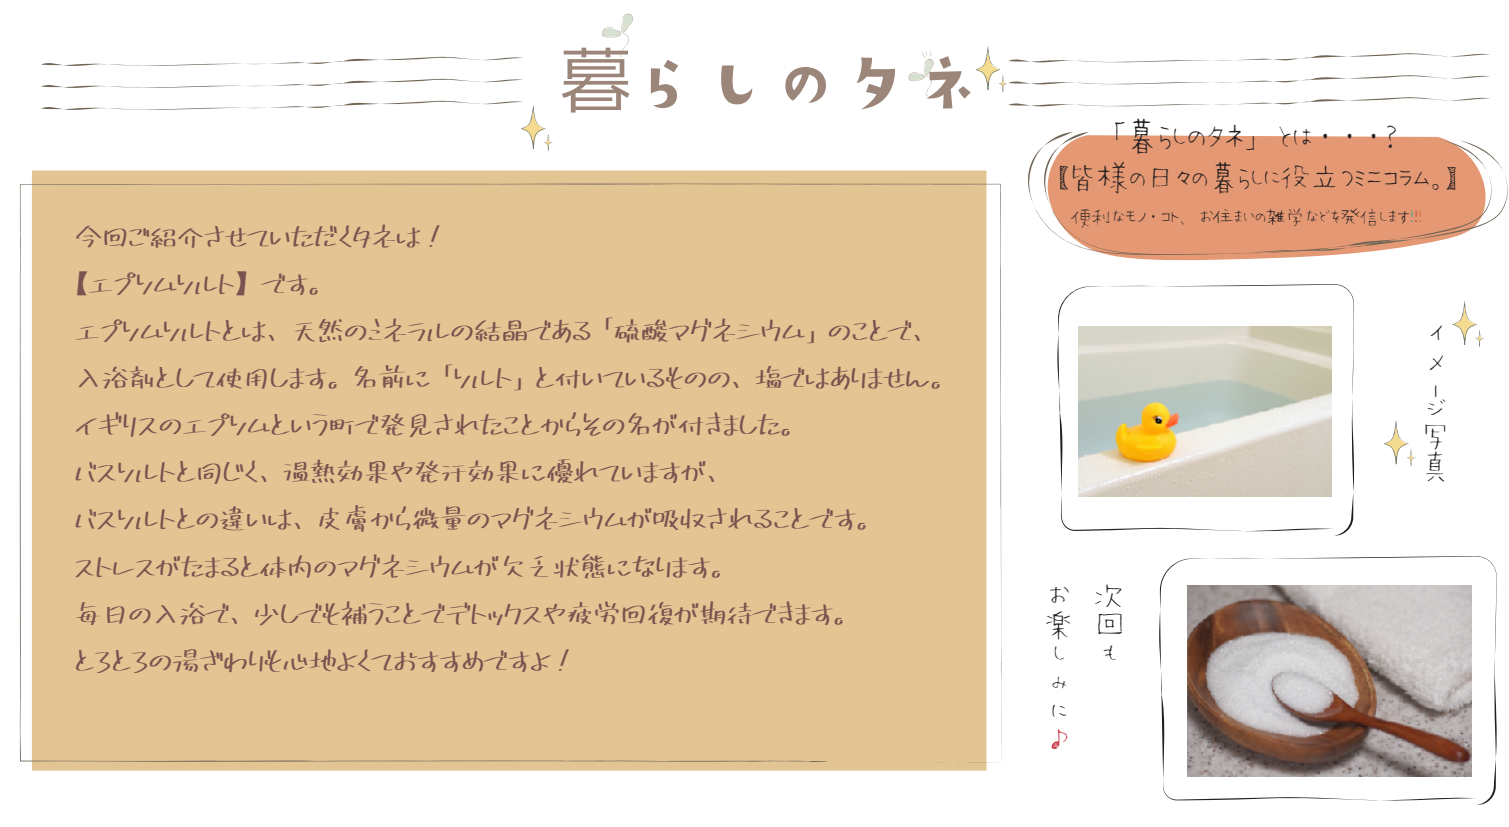 暮らしのタネ
「暮らしのタネ」とは・・・?
【皆様の日々の暮らしに役立つミニコラム。】
便利なモノ・コト、お住まいの雑学などを発信します!!!
今回ご紹介させていただくタネは!
【エプソムソルト】です。
エプソムソルトとは、天然のミネラルの結晶である「硫酸マグネシウム」のことで、
入浴剤として使用します。名前に「ソルト」と付いているものの、塩ではありません。
イギリスのエプソムという町で発見されたことからその名が付きました。
バスソルトと同じく、温熱効果や発汗効果に優れていますが、
バスソルトとの違いは、皮膚から微量のマグネシウムが吸収されることです。
ストレスがたまると体内のマグネシウムが欠乏状態になります。
毎日の入浴で、少しでも補うことでデトックスや疲労回復が期待できます。
とろとろの湯ざわりも心地よくておすすめですよ!
イメージ写真
次回も
お楽しみに♪